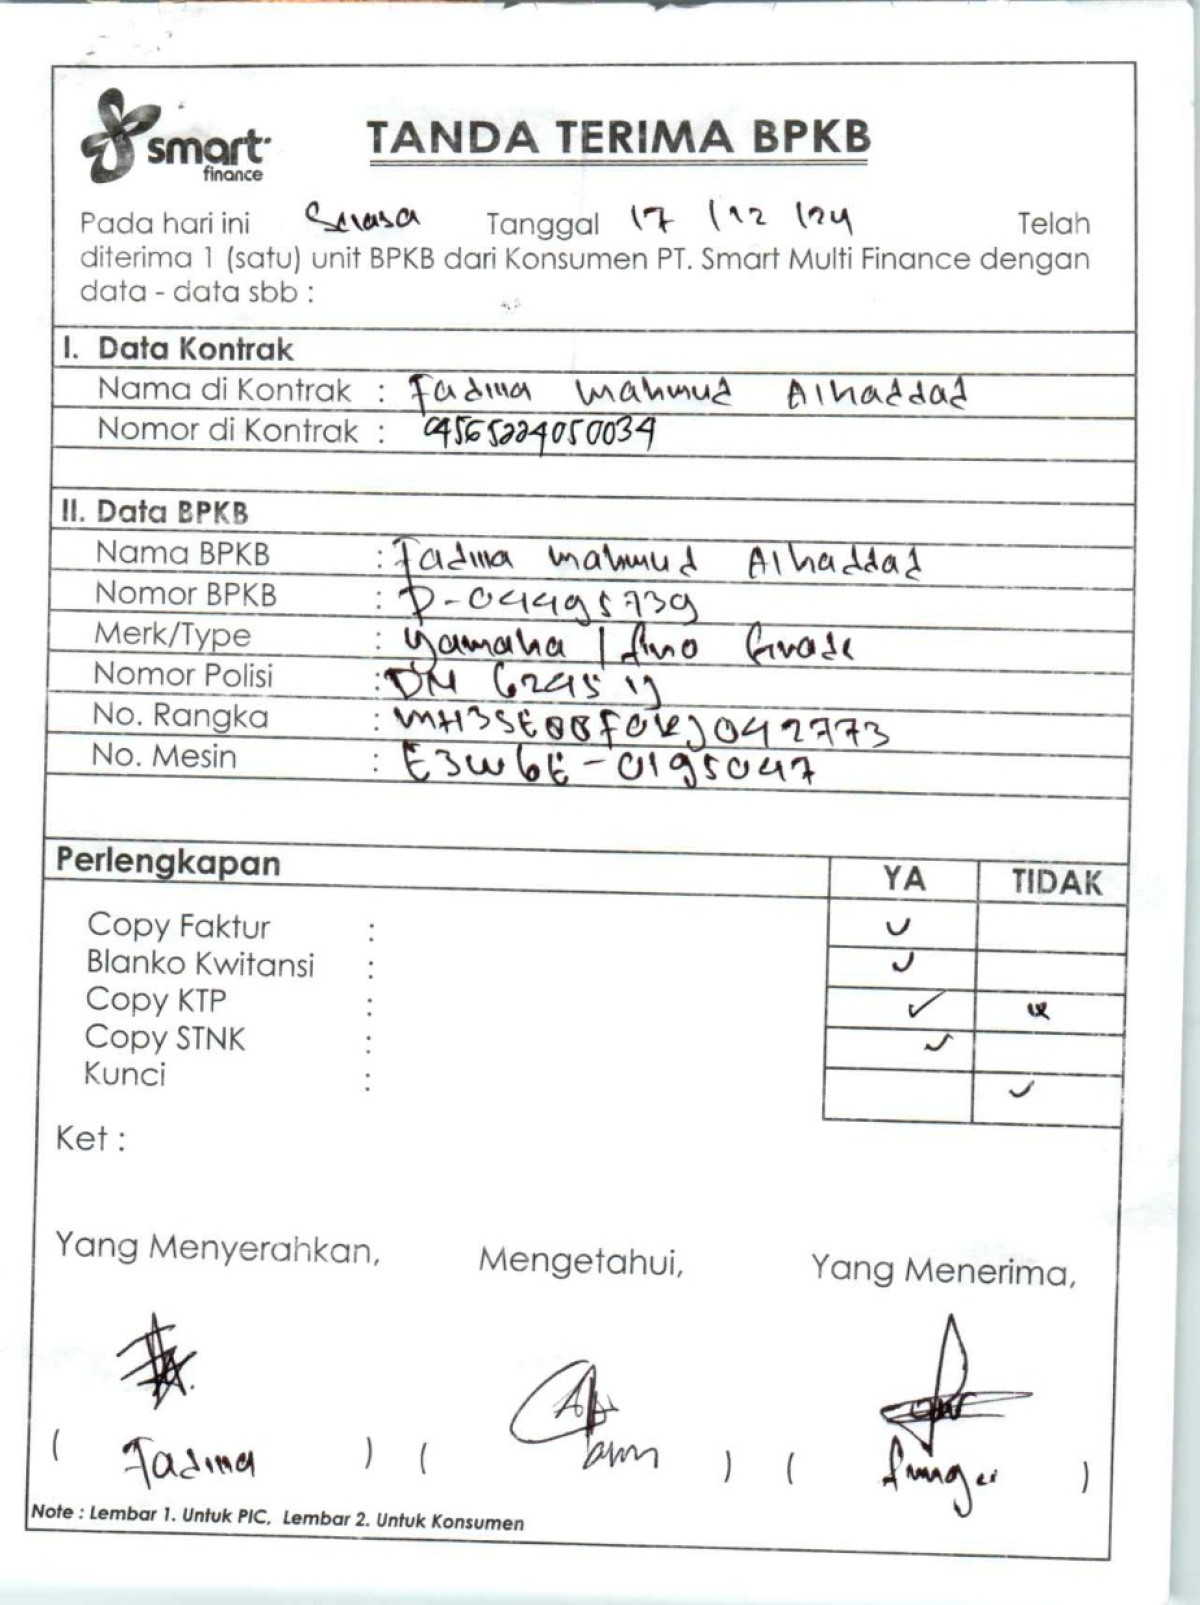 smart
finance
TANDA TERIMA BPKB
Pada hari ini Selasa Tanggal 17 / 12 / 24 Telah
diterima 1 (satu) unit BPKB dari Konsumen PT. Smart Multi Finance dengan
data - data sbb :
I. Data Kontrak
Nama di Kontrak : Fadina Mahmud Alhaddad
Nomor di Kontrak : 04565224050034
II. Data BPKB
Nama BPKB : Fadina Mahmud Alhaddad
Nomor BPKB : P-04495739
Merk/Type : Yamaha / fino Grade
Nomor Polisi : DM 6295
No. Rangka : MH3SE88F0KJ042773
No. Mesin : E3W6E-0195047
Perlengkapan YA TIDAK
Copy Faktur : ✓
Blanko Kwitansi : ✓
Copy KTP : ✓
Copy STNK : ✓
Kunci : ✓
Ket :
Yang Menyerahkan, Mengetahui, Yang Menerima,
( Fadina ) ( ) ( )
Note : Lembar 1. Untuk PIC, Lembar 2. Untuk Konsumen